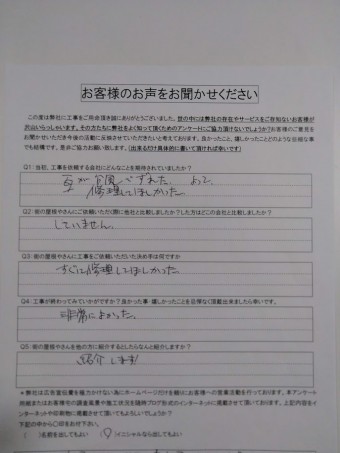 お客様のお声をお聞かせください
この度は弊社に工事をご用命頂き誠にありがとうございました。世の中には弊社の存在やサービスをご存知ないお客様が
沢山いらっしゃいます。その方たちに弊社をよく知って頂くためのアンケートにご協力頂けないでしょうか?お客様のご意見を
お聞かせいただき今後の活動に反映させていきたいと考えております。良かったこと、嬉しかったことどのような些細な事
でも結構です。是非ご協力お願い致します。(出来るだけ具体的に書いて頂ければ幸いです)
Q1:当初、工事を依頼する会社にどんなことを期待されていましたか?
瓦が ずれた。
修理してほしかった。
Q2:街の屋根やさんをご依頼いただく際に他社と比較しましたか?した方はどこの会社と比較しましたか?
していません。
Q3:街の屋根やさんに工事をご依頼いただいた決め手は何ですか
すぐに修理してほしかった。
Q4:工事が終わってみていかがですか?良かった事・嬉しかったことを忌憚なく頂戴出来ましたら幸いです。
非常によかった。
Q5:街の屋根やさんを他の方に紹介するとしたらなんと紹介しますか?
紹介します!
*弊社は広告宣伝費を極力かけない為にホームページだけを頼りにお客様への営業活動を行っております。本アンケート
用紙またはお客様宅の調査風景や施工状況を随時ブログ形式のインターネットに掲載させて頂いております。上記内容をイ
ンターネットや印刷物に掲載させて頂いてもよろしいでしょうか?
下記の中から○印をお付け下さい。
( )名前を出してもよい (○)イニシャルなら出してもよい